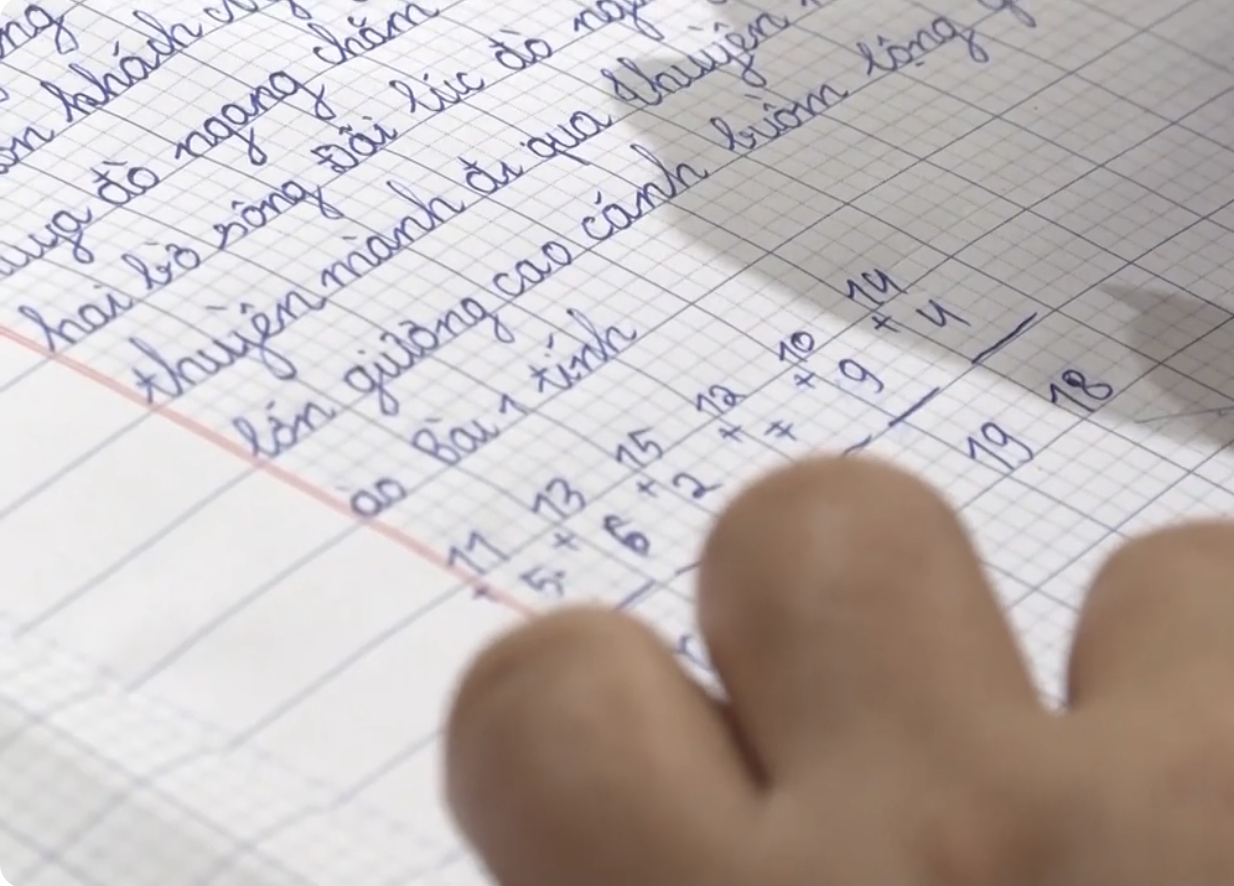 khách
đò ngang chăm
hai bờ sông Đãi lúc đò
thuyền mành đi qua thuyền
lớn giường cao cánh buồm lộng
ào Bài 1 tính
11 13 15 12 10 14
+ + + + + +
5 6 2 7 9 4
19 18